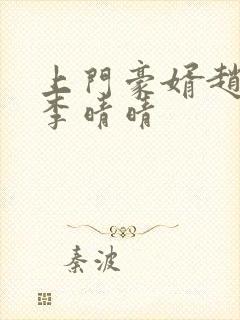 上門豪婿趙
李晴晴
秦波